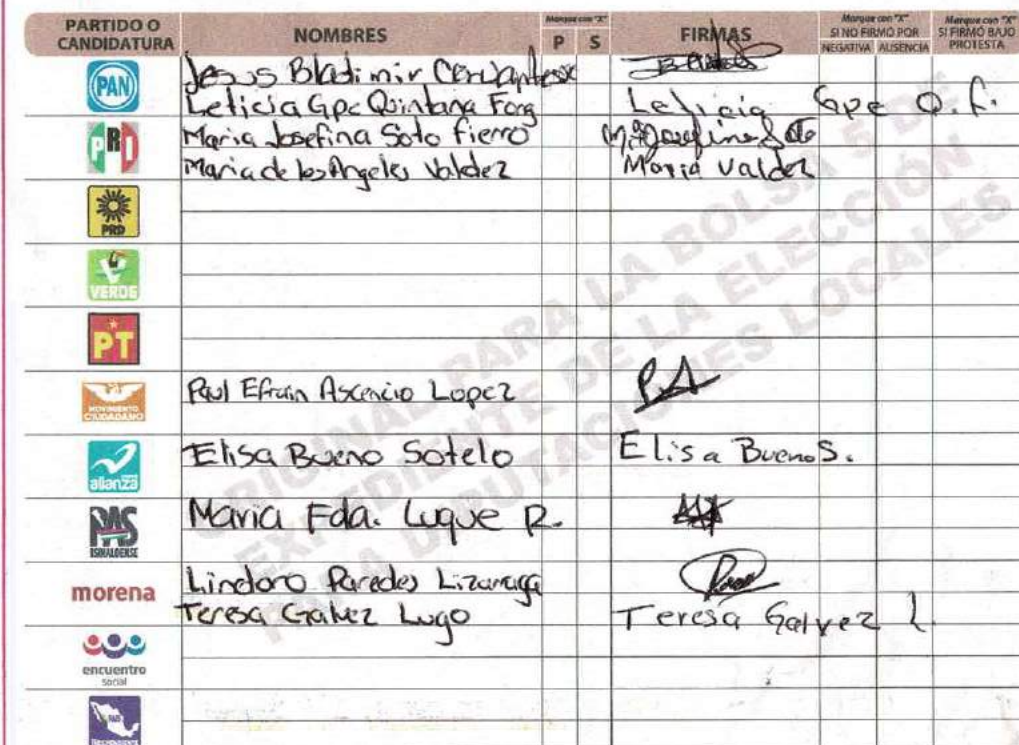 PARTIDO O CANDIDATURA
NOMBRES
Marque con "X"
P S
FIRMAS
Marque con "X" SI NO FIRMÓ POR
NEGATIVA AUSENCIA
Marque con "X" SI FIRMÓ BAJO PROTESTA
PAN
Jesus Bladimir
Leticia Gpe Quintana Leticia Gpe Q. F.
PRI
Maria Josefina Soto Fierro Mª Josefina Soto
Maria de los Angeles Valdez Maria Valdez
PRD
VERDE
PT
MOVIMIENTO CIUDADANO
Raul Efrain Ascencio Lopez
alianza
Elisa Bueno Sotelo Elisa Bueno S.
PAS
SINALOENSE
Maria Fda. Luque R.
morena
Lindoro Paredes Lizarraga
Teresa Galvez Lugo Teresa Galvez L.
encuentro
social
ORIGINAL PARA LA BOLSA 5 DE
EXPEDIENTE DE LA ELECCIÓN
PARA DIPUTACIONES LOCALES